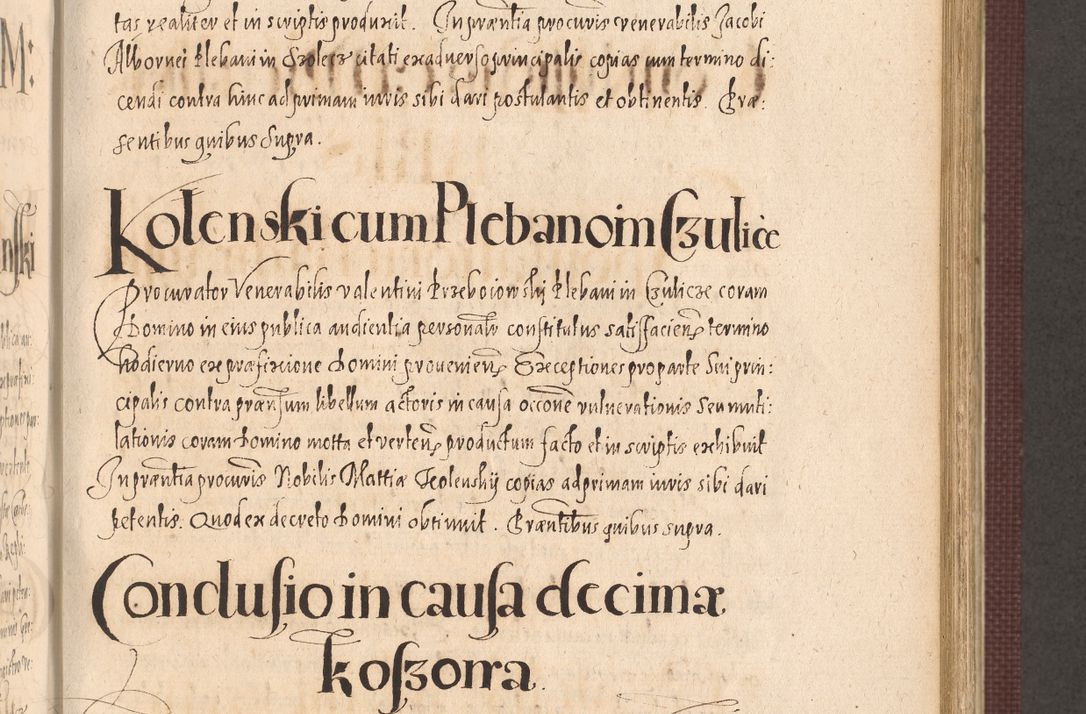 tas realiter et in scriptis produxit. In præntia procuris venerabilis Jacobi
Albornei Plebani in citati ex adverso principalis copias cum termino di:
cendi contra hinc ad primam iuris sibi dari postulantis et obtinentis. Præ:
sentibus quibus supra.
Kolenski cum Plebano in Czulice
Procurator Venerabilis Valentini Przebociowskij Plebani in Czulicze coram
Domino in eius publica audientia personalr constitutus satisfaciens termino
hodierno ex præfixione Domini proveniens Exceptiones pro parte Sui prin:
cipalis contra prænsum libellum actoris in causa occone vulnerationis Seu muti:
lationis coram Domino motta et vertens productum facto et in scriptis exhibuit
In præntia procuris Nobilis Mattiæ Kolenskij copias ad primam iuris sibi dari
petentis. Quod ex decreto Domini obtinuit. Præntibus quibus supra.
Conclusio in causa decimæ
koszorra.